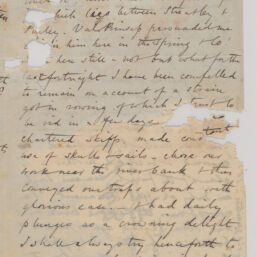 which lies between Streatley &
Purley. Val Prinsep persuaded me
him here in the Spring & lo!
here still - not but what for the
fortnight I have been compelled
to remain on account of a strain
got in rowing of which I trust to
be rid in a few days.
chartered skiffs made
use of sculls & sails - chose our
work near the river bank & then
conveyed our traps about with
glorious ease. & had daily
plunges as a crowning delight
I shall always try henceforth to